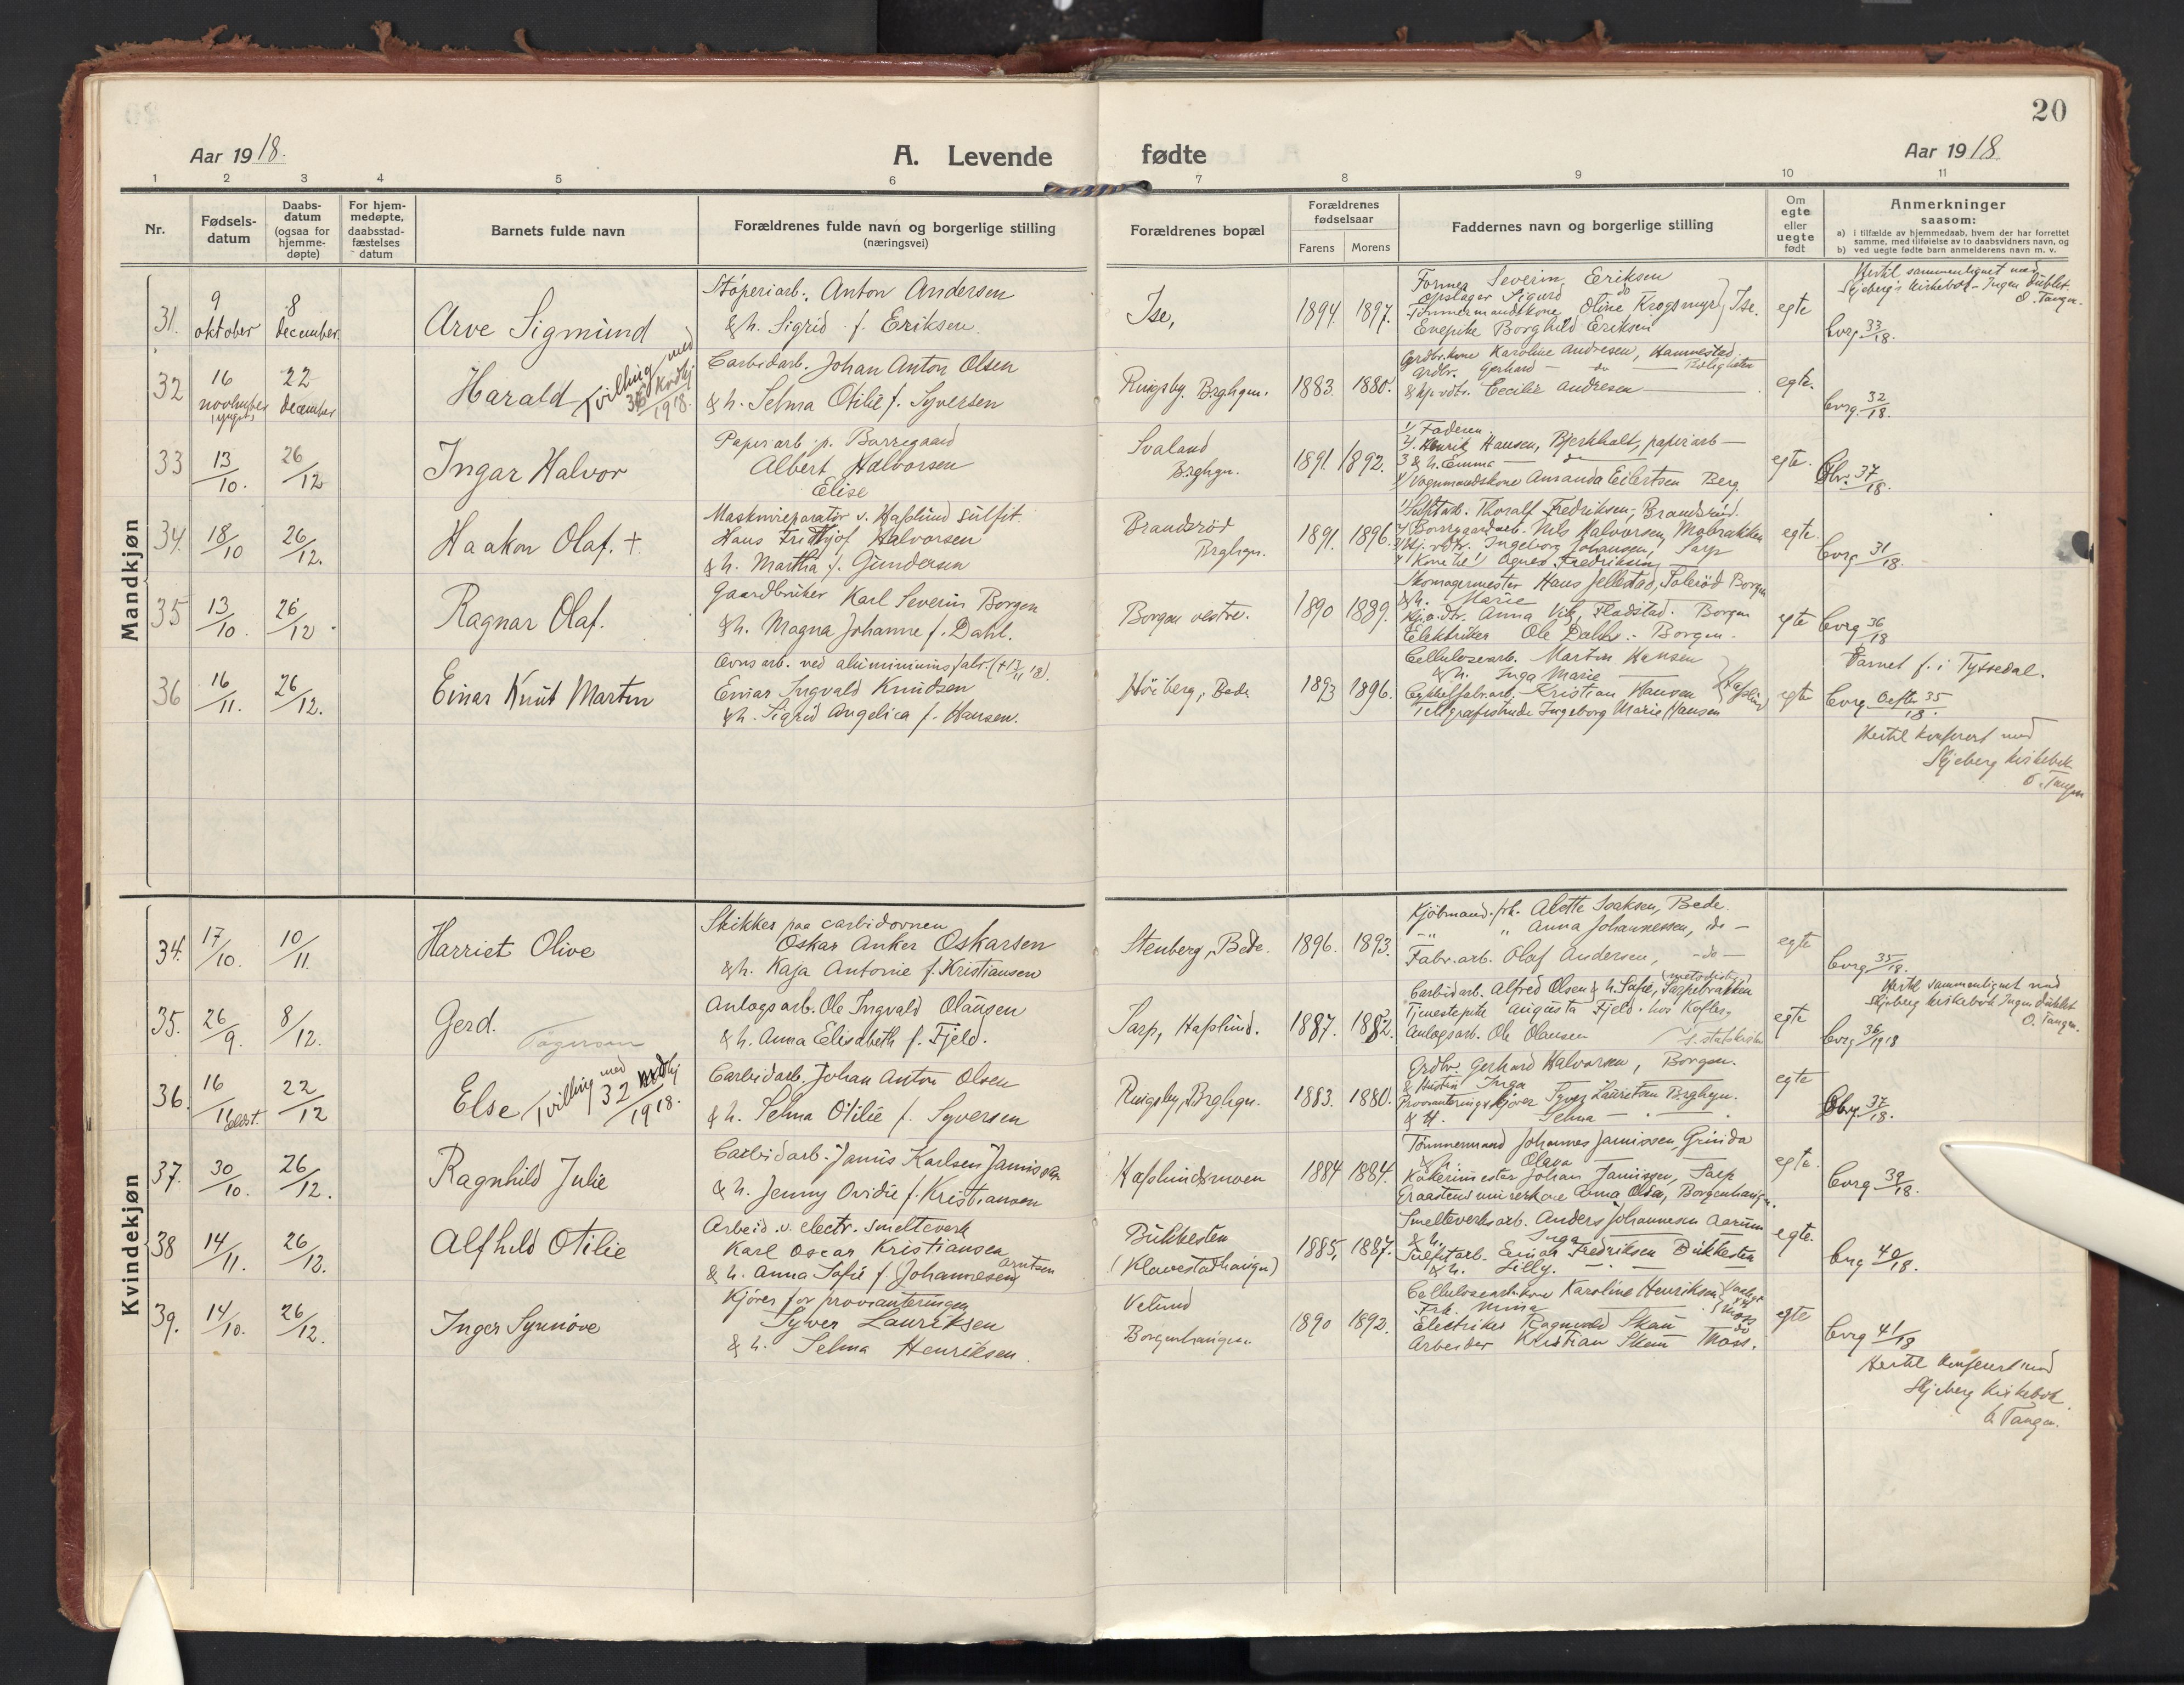 20
Aar 1918.
A. Levende fødte
Aar 1918.
1 2 3 4 5 6 7 8 9 10 11
Nr.
Fødsels-
datum
Daabs-
datum
(ogsaa for
hjemme-
døpte)
For hjem-
medøpte,
daabsstad-
fæstelses
datum
Barnets fulde navn
Forældrenes fulde navn og borgerlige stilling
(næringsvei)
Forældrenes bopæl
Forældrenes
fødselsaar
Farens Morens
Faddernes navn og borgerlige stilling
Om
egte
eller
uegte
født
Anmerkninger
saasom:
a) i tilfælde av hjemmedaab, hvem der har forrettet
samme, med tilføielse av to daabsvidners navn, og
b) ved uegte fødte barn anmelderens navn m. v.
Mandkjøn
31. 9 oktober 8 december.
Arve Sigmund
Støperiarb. Anton Andersen
& h. Sigrid f. Eriksen.
Ise,
1894. 1897.
Former Severin Eriksen
Opslager Sigurd do
Tømmermandskone Oline Krogsmyr } Ise.
Enepike Borghild Eriksen
egte
Hertil sammenlignet med
Skjeberg's kirkebok - Ingen dublet.
O. Tangen.
Borg. 33/18.
32 16 november 22 december
Harald Tvilling med
36 Kvdkj 1918.
Carbidarb. Johan Anton Olsen
& h. Selma Otilie f. Syversen
Ringsby. Brghgn.
1883. 1880.
Grdbr.kone Karoline Andresen, Hannestad
Grdbr. Gerhard — do — Roligheten
& hj.vdtr. Cecilie Andresen —
egte.
Borg. 32/18.
33 13/10. 26/12
Ingar Halvor
Papirarb. p. Borregaard
Albert Halvorsen
Elise
Svaland
Brghgn.
1891. 1892.
1/ Faderen.
2/. Henrik Hansen, Bjerkholt, papirarb —
3 & h. Emma — do —
4/ Vognmandskone Amanda Eilertsen Berg
egte.
37/18.
34. 18/10 26/12.
Haakon Olaf. +
Maskinreparatør v. Hafslund sulfit.
Hans Fridthjof Halvorsen
& h. Martha f. Gundersen
Brandsrød
Brghgn.
1891. 1896.
1/ Sulfitarb. Thoralf Fredriksen, Brandsrød.
2/ Borregaardarb. Nils Halvorsen, Mobrakken
3/ Hj. vdtr. Ingeborg Johansen, Sarp
4/ Kone til 1/ Agnes Fredriksen
egte.
Borg 31/18.
35 13/10. 26/12.
Ragnar Olaf.
Gaardbruker Karl Severin Borgen
& h. Magna Johanne f. Dahl.
Borgen vestre.
1890 1889.
Skomagermester Hans Jellestad, Borgen
& h. Marie
Hj.v.dtr. Anna Vik, Fladstad. Borgen
Elektriker Ole Dahl. - Borgen.
egte
Borg 36/18
36 16/11. 26/12.
Einar Knut Martin
Ovnsarb. ved aluminiumsfabr. (+ 13/11 18).
Einar Ingvald Knudsen
& h. Sigrid Angelica f. Hansen.
Høiberg, Bede
1893 1896.
Cellulosearb. Martin Hansen
& h. Inga Marie —
Cykkelfabr.arb. Kristian Hansen } Hafslund
Telegrafistinde Ingeborg Marie Hansen
egte
Barnet f. i Tyssedal.
Borg 35/18.
Hertil konferert med
Skjeberg kirkebok
O. Tangen
Kvindekjøn
34. 17/10. 10/11.
Harriet Olive
Skikker paa carbidovnen
Oskar Anker Oskarsen
& h. Kaja Antonie f. Kristiansen
Stenberg, Bede.
1896. 1893.
Kjøbmand. fh. Alette Isaksen, Bede.
-"- " Anna Johannessen, do -
Fabr.arb. Olaf Andersen, -do-
egte
Borg 35/18.
35. 26/9. 8/12.
Gerd.
Anlagsarb. Ole Ingvald Olausen
& h. Anna Elisabeth f. Fjeld.
Sarp, Hafslund.
1887. 1882.
Carbidarb. Alfred Olsen & h. Sofie, (metodist) Sarpebrakken
Tjenestepike Augusta Fjeld. hos
Anlagsarb. Ole Olausen
egte
Hertil sammenlignet med
Skjeberg kirkebok Ingen dublet
O. Tangen.
Borg 36/1918
36. 16/11 22/12
Else Tvilling med
32 1918.
Carbidarb. Johan Anton Olsen
& h. Selma Otilie f. Syversen
Ringsby, Brghgn.
1883. 1880.
Grdbr. Gerhard Halvorsen, Borgen.
& Hustru Inga
Provianteringskjører Syver Lauritsen Brghgn.
& H. Selma — . —
egte
37/18.
37. 30/10. 26/12.
Ragnhild Julie
Carbidarb. Janus Karlsen Janissen
& h. Jenny Ovidie f. Kristiansen
Hafslundsmoen
1884 1884.
Tømmermand Johannes Janissen, Grinda
& h. Olava —
Kokerimester Johan Janissen, Sarp
Anna Olsen, Borgenhaugen.
egte.
Borg 39/18.
38 14/11. 26/12.
Alfhild Otilie
Arbeid. v. electr. smelteverk
Karl Oscar Kristiansen
& h. Anna Sofie f. Johannesen Arntsen
Bukkesten
(Klavestadhaugn)
1885. 1887.
Smelteverksarb. Anders Johannesen Aarum
& h. Inga —
Sulfitarb. Einar Fredriksen Bukkesten
& h. Lilly. — . —
egte.
Brg 40/18.
39. 14/10. 26/12.
Inger Synnøve
Kjører for provianteringen
Syver Lauritsen
& h. Selma Henriksen.
Velund
Borgenhaugen
1890 1892.
Cellulosearb.kone Karoline Henriksen
Frk. Mina
Elektriker Ragnvald Skau
Arbeider Kristian Skau Moss.
egte
Borg 41/18
Hertil konferert med
Skjeberg kirkebok
O. Tangen.